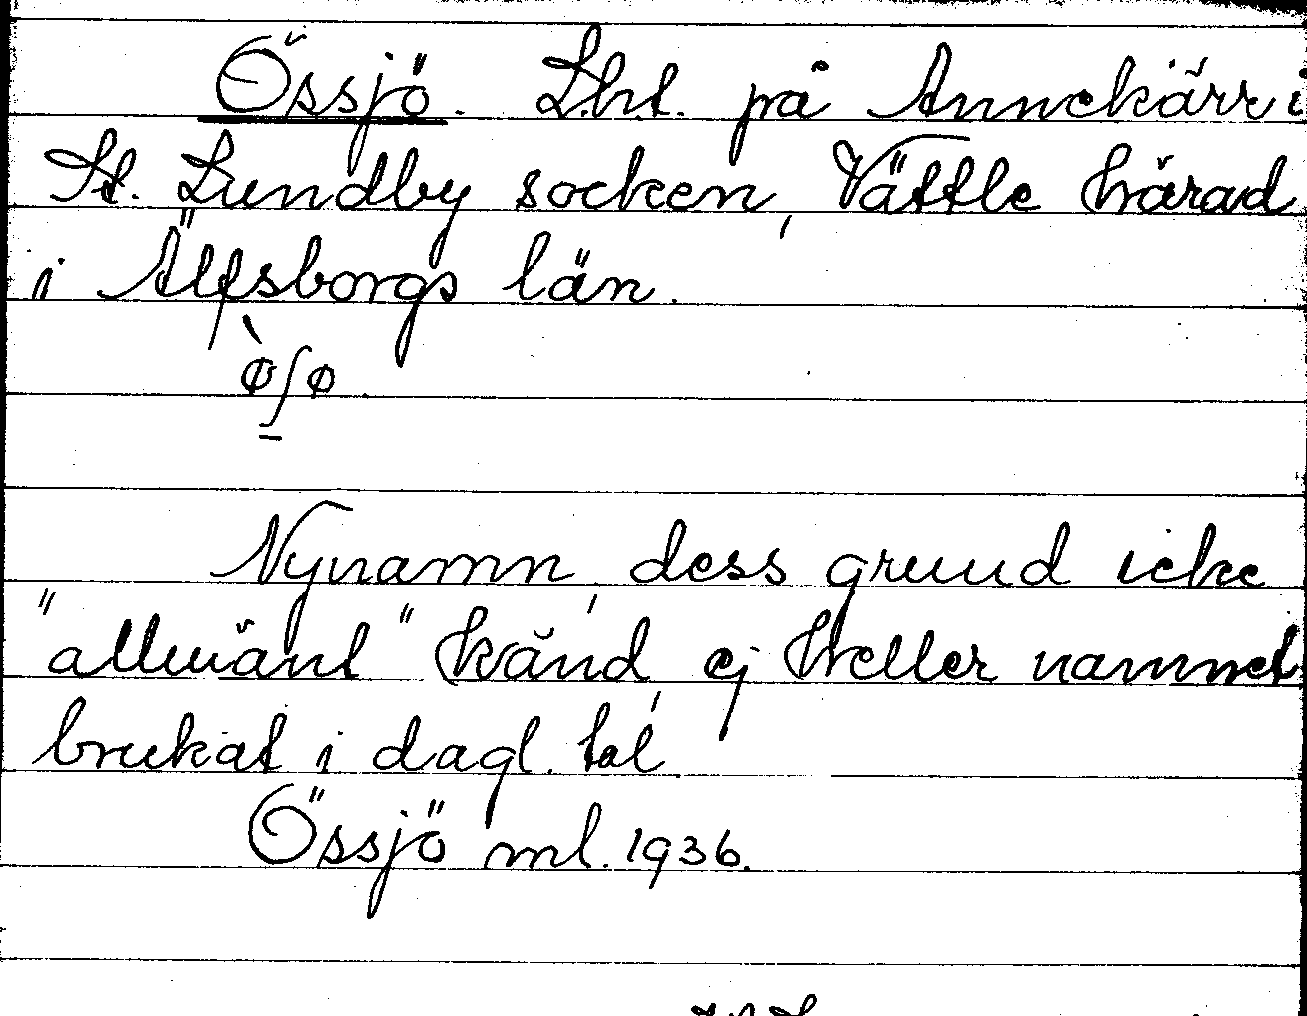 Össjö. Lht. på Annekärr i
St. Lundby socken, Vättle härad
i Älfsborgs län.
ø̀ʃø
Nynamn, dess grund icke
"allmänt" känd, ej heller namnet
brukat i dagl. tal.
Össjö ml. 1936.